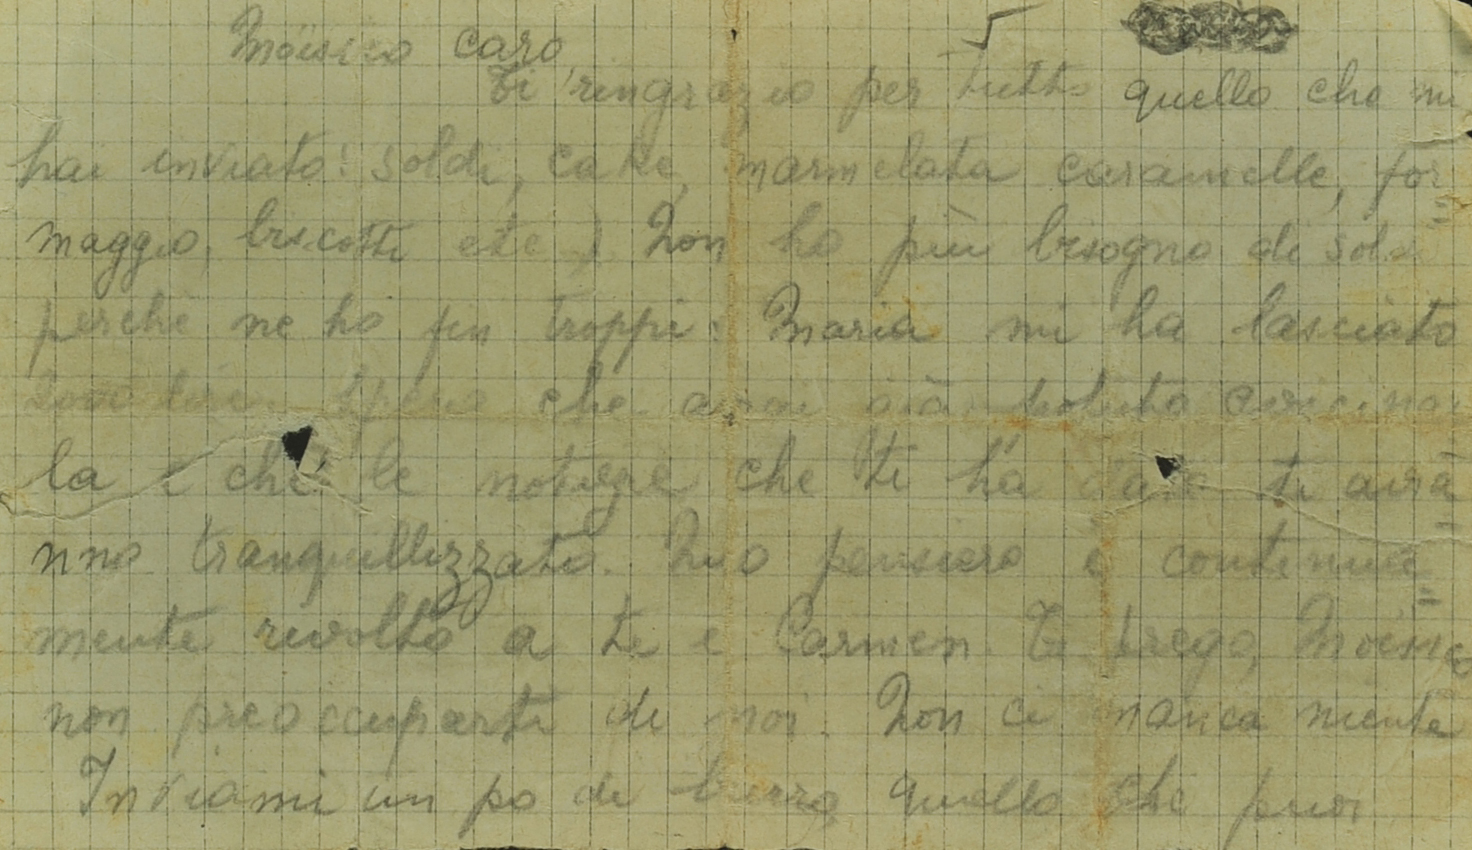 caro
Ti ringrazio per tutto quello che mi
hai inviato: soldi, cake, marmelata caramelle, for=
maggio, biscotti etc.). Non ho più bisogno di soldi
perchè ne ho fin troppi: Maria mi ha lasciato
2000 lire. Spero che avrai già potuto avvicinar
la e che le notizie che ti ha dato ti avrà=
nno tranquillizzato. Mio pensiero è continua=
mente rivolto a te e Carmen. Ti prego,
non preoccuparti di noi. Non ci manca niente
Inviami un po di burro quello che puoi